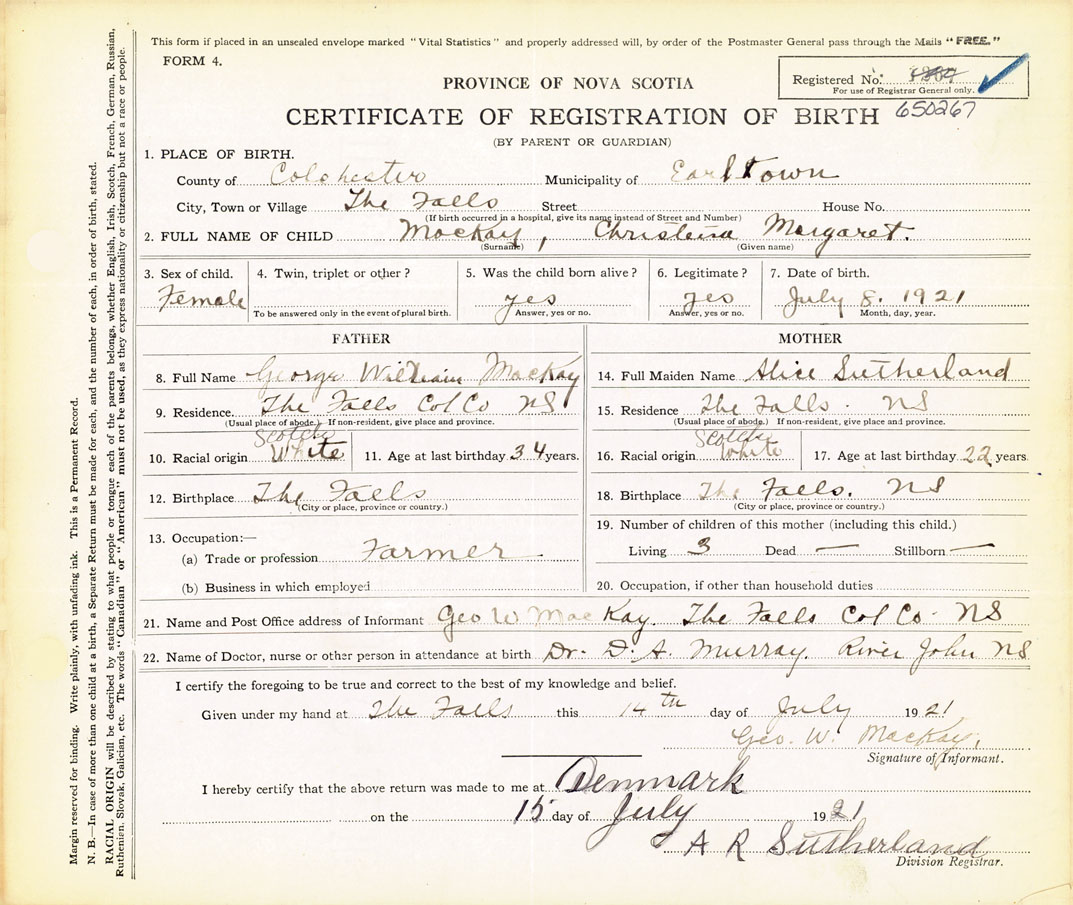 This form if placed in an unsealed envelope marked "Vital Statistics" and properly addressed will, by order of the Postmaster General pass through the Mails "FREE."
FORM 4.
Registered No.
For use of Registrar General only.
650267
PROVINCE OF NOVA SCOTIA
CERTIFICATE OF REGISTRATION OF BIRTH
(BY PARENT OR GUARDIAN)
1. PLACE OF BIRTH.
County of Colchester Municipality of Earltown
City, Town or Village The Falls Street House No.
(If birth occurred in a hospital, give its name instead of Street and Number)
2. FULL NAME OF CHILD MacKay, Christena Margaret.
(Surname) (Given name)
3. Sex of child. 4. Twin, triplet or other? 5. Was the child born alive? 6. Legitimate? 7. Date of birth.
Female yes yes July 8. 1921
To be answered only in the event of plural birth. Answer, yes or no. Answer, yes or no. Month, day, year.
FATHER
8. Full Name George William MacKay
9. Residence. The Falls Col Co NS
(Usual place of abode.) If non-resident, give place and province.
Scotch
10. Racial origin White 11. Age at last birthday 34 years.
12. Birthplace The Falls
(City or place, province or country.)
13. Occupation:—
(a) Trade or profession Farmer
(b) Business in which employed
MOTHER
14. Full Maiden Name Alice Sutherland
15. Residence The Falls. NS
(Usual place of abode.) If non-resident, give place and province.
Scotch
16. Racial origin White 17. Age at last birthday 22 years.
18. Birthplace The Falls. NS
(City or place, province or country.)
19. Number of children of this mother (including this child.)
Living 3 Dead — Stillborn —
20. Occupation, if other than household duties
21. Name and Post Office address of Informant Geo W MacKay. The Falls Col Co. NS
22. Name of Doctor, nurse or other person in attendance at birth Dr. D. A. Murray. River John NS
I certify the foregoing to be true and correct to the best of my knowledge and belief.
Given under my hand at The Falls this 14th day of July 1921
Geo. W. MacKay.
Signature of Informant.
I hereby certify that the above return was made to me at Denmark
on the 15 day of July 1921
A R Sutherland
Division Registrar.
Margin reserved for binding. Write plainly, with unfading ink. This is a Permanent Record.
N. B.—In case of more than one child at a birth, a Separate Return must be made for each, and the number of each, in order of birth, stated.
RACIAL ORIGIN will be described by stating to what people or tongue each of the parents belongs, whether English, Irish, Scotch, French, German, Russian,
Ruthenien, Slovak, Galician, etc. The words "Canadian" or "American" must not be used, as they express nationality or citizenship but not a race or people.